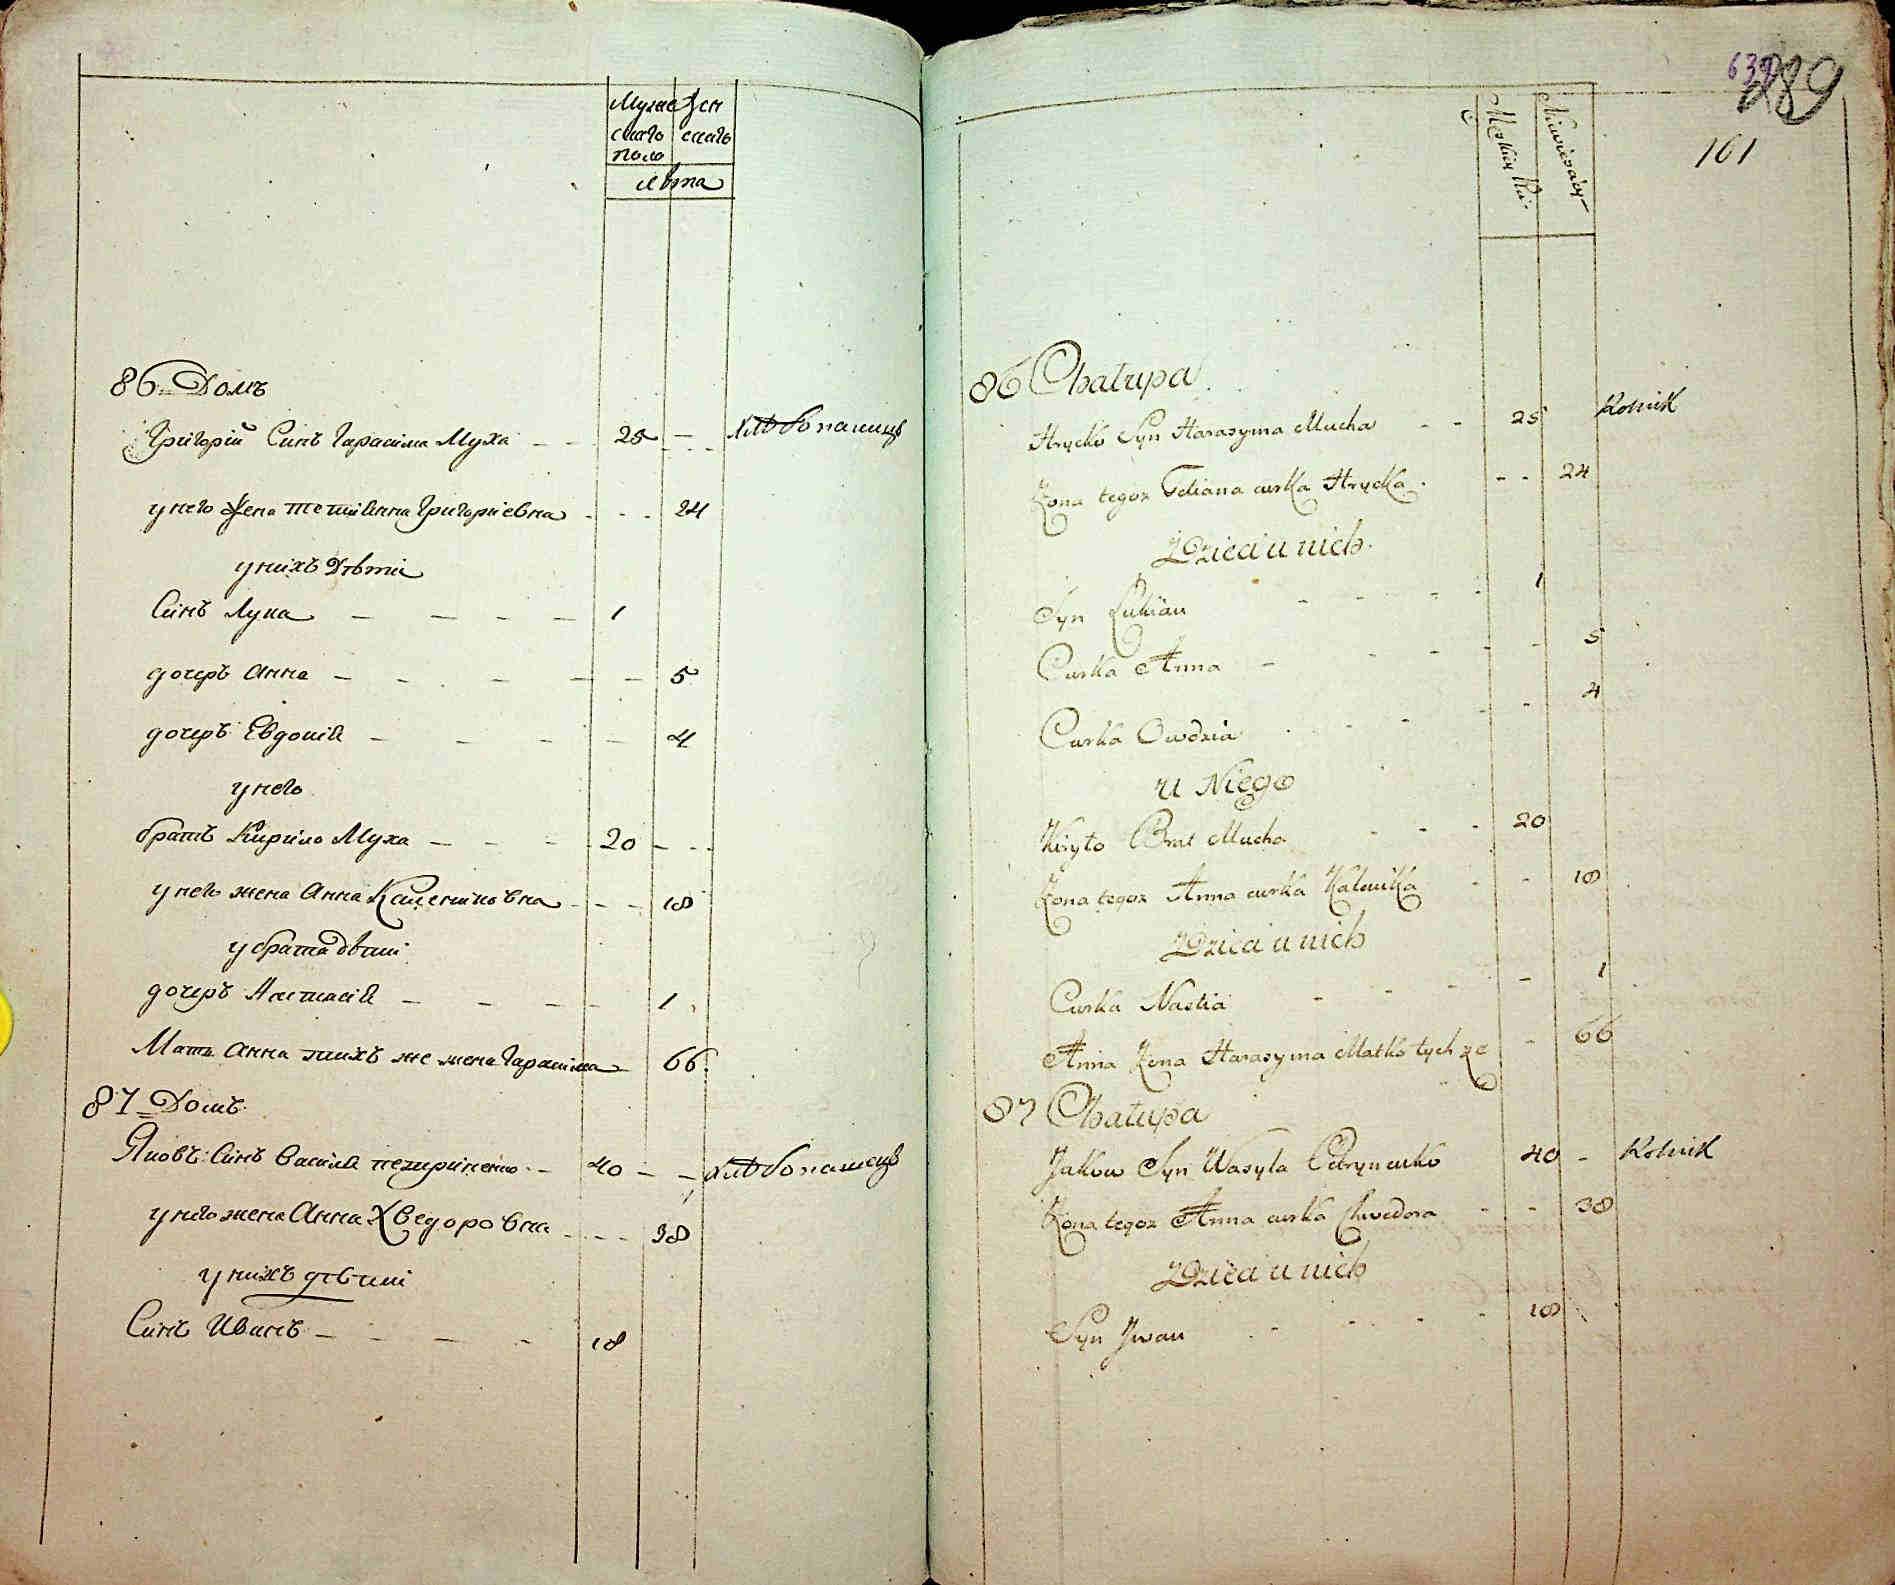 Муже Жен
скаго скаго
полу
лѣта
86 Домъ
Григорій Синъ Гарасима Муха 25 хлѣбопашець
у него жена Тетіянна Григоріевна 24
у нихъ Дѣти
Синъ Лука 1
дочерь Анна 5
дочерь Евдокія 4
у него
братъ Кирило Муха 20
у него жена Анна 18
у брата дѣти
дочерь Настасія 1
Мать Анна тихъ же жена Гарасима 66
87 Домъ
Яковъ Синъ Василя петриненко 40 хлѣбопашець
у него жена Анна Хведоровна 38
у нихъ дѣти
Синъ Иванъ 18
639
289
161
Męskiey
Niewieściey
86 Chałupa
Hrycko Syn Harasyma Mucha 25 Rolnik
Żona tegoż Tetiana curka Hrycka 24
Dzieci u nich
Syn Łukian 1
Curka Anna 5
Curka Owdzia 4
u Niego
Kiryło Brat Mucha 20
Żona tegoż Anna curka Kalenika 18
Dzieci u nich
Curka Nastia 1
Anna Żena Harasyma Matka tych że 66
87 Chałupa
Jakow Syn Wasyla Petrynenko 40 Rolnik
Żona tegoż Anna curka Chwedora 38
Dzieci u nich
Syn Jwan 18